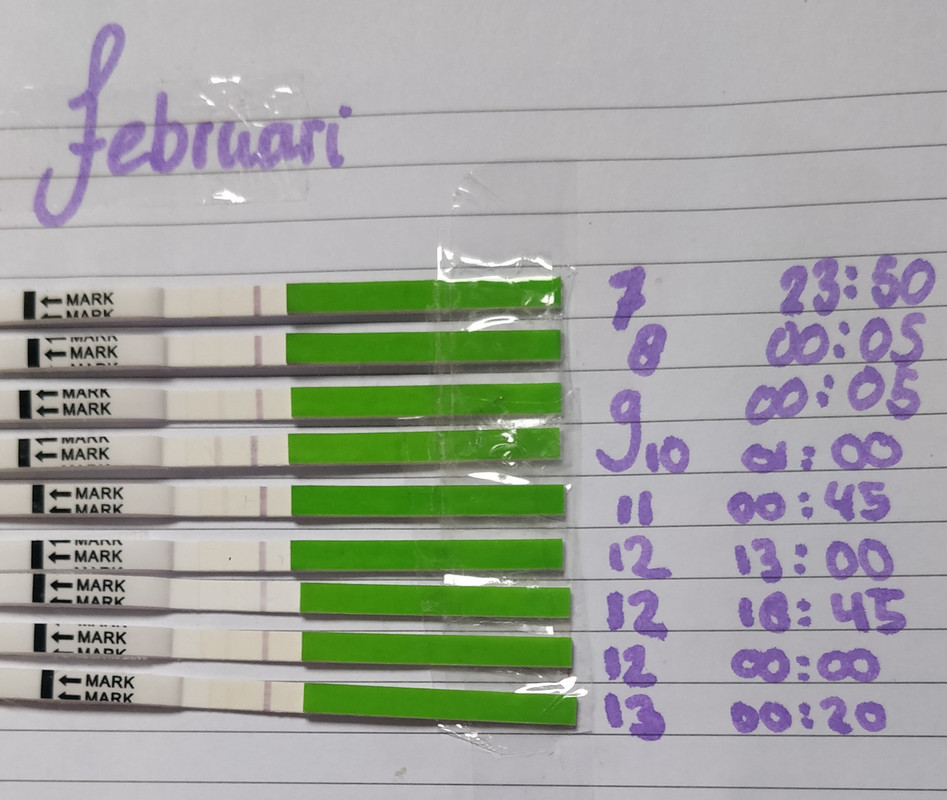 Februari
← MARK 7 23:50
← MARK
← MARK 8 00:05
← MARK 9 00:05
← MARK
← MARK 10 01:00
← MARK 11 00:45
← MARK
← MARK
← MARK 12 13:00
← MARK 12 18:45
← MARK
← MARK 12 00:00
← MARK
← MARK 13 00:20
← MARK